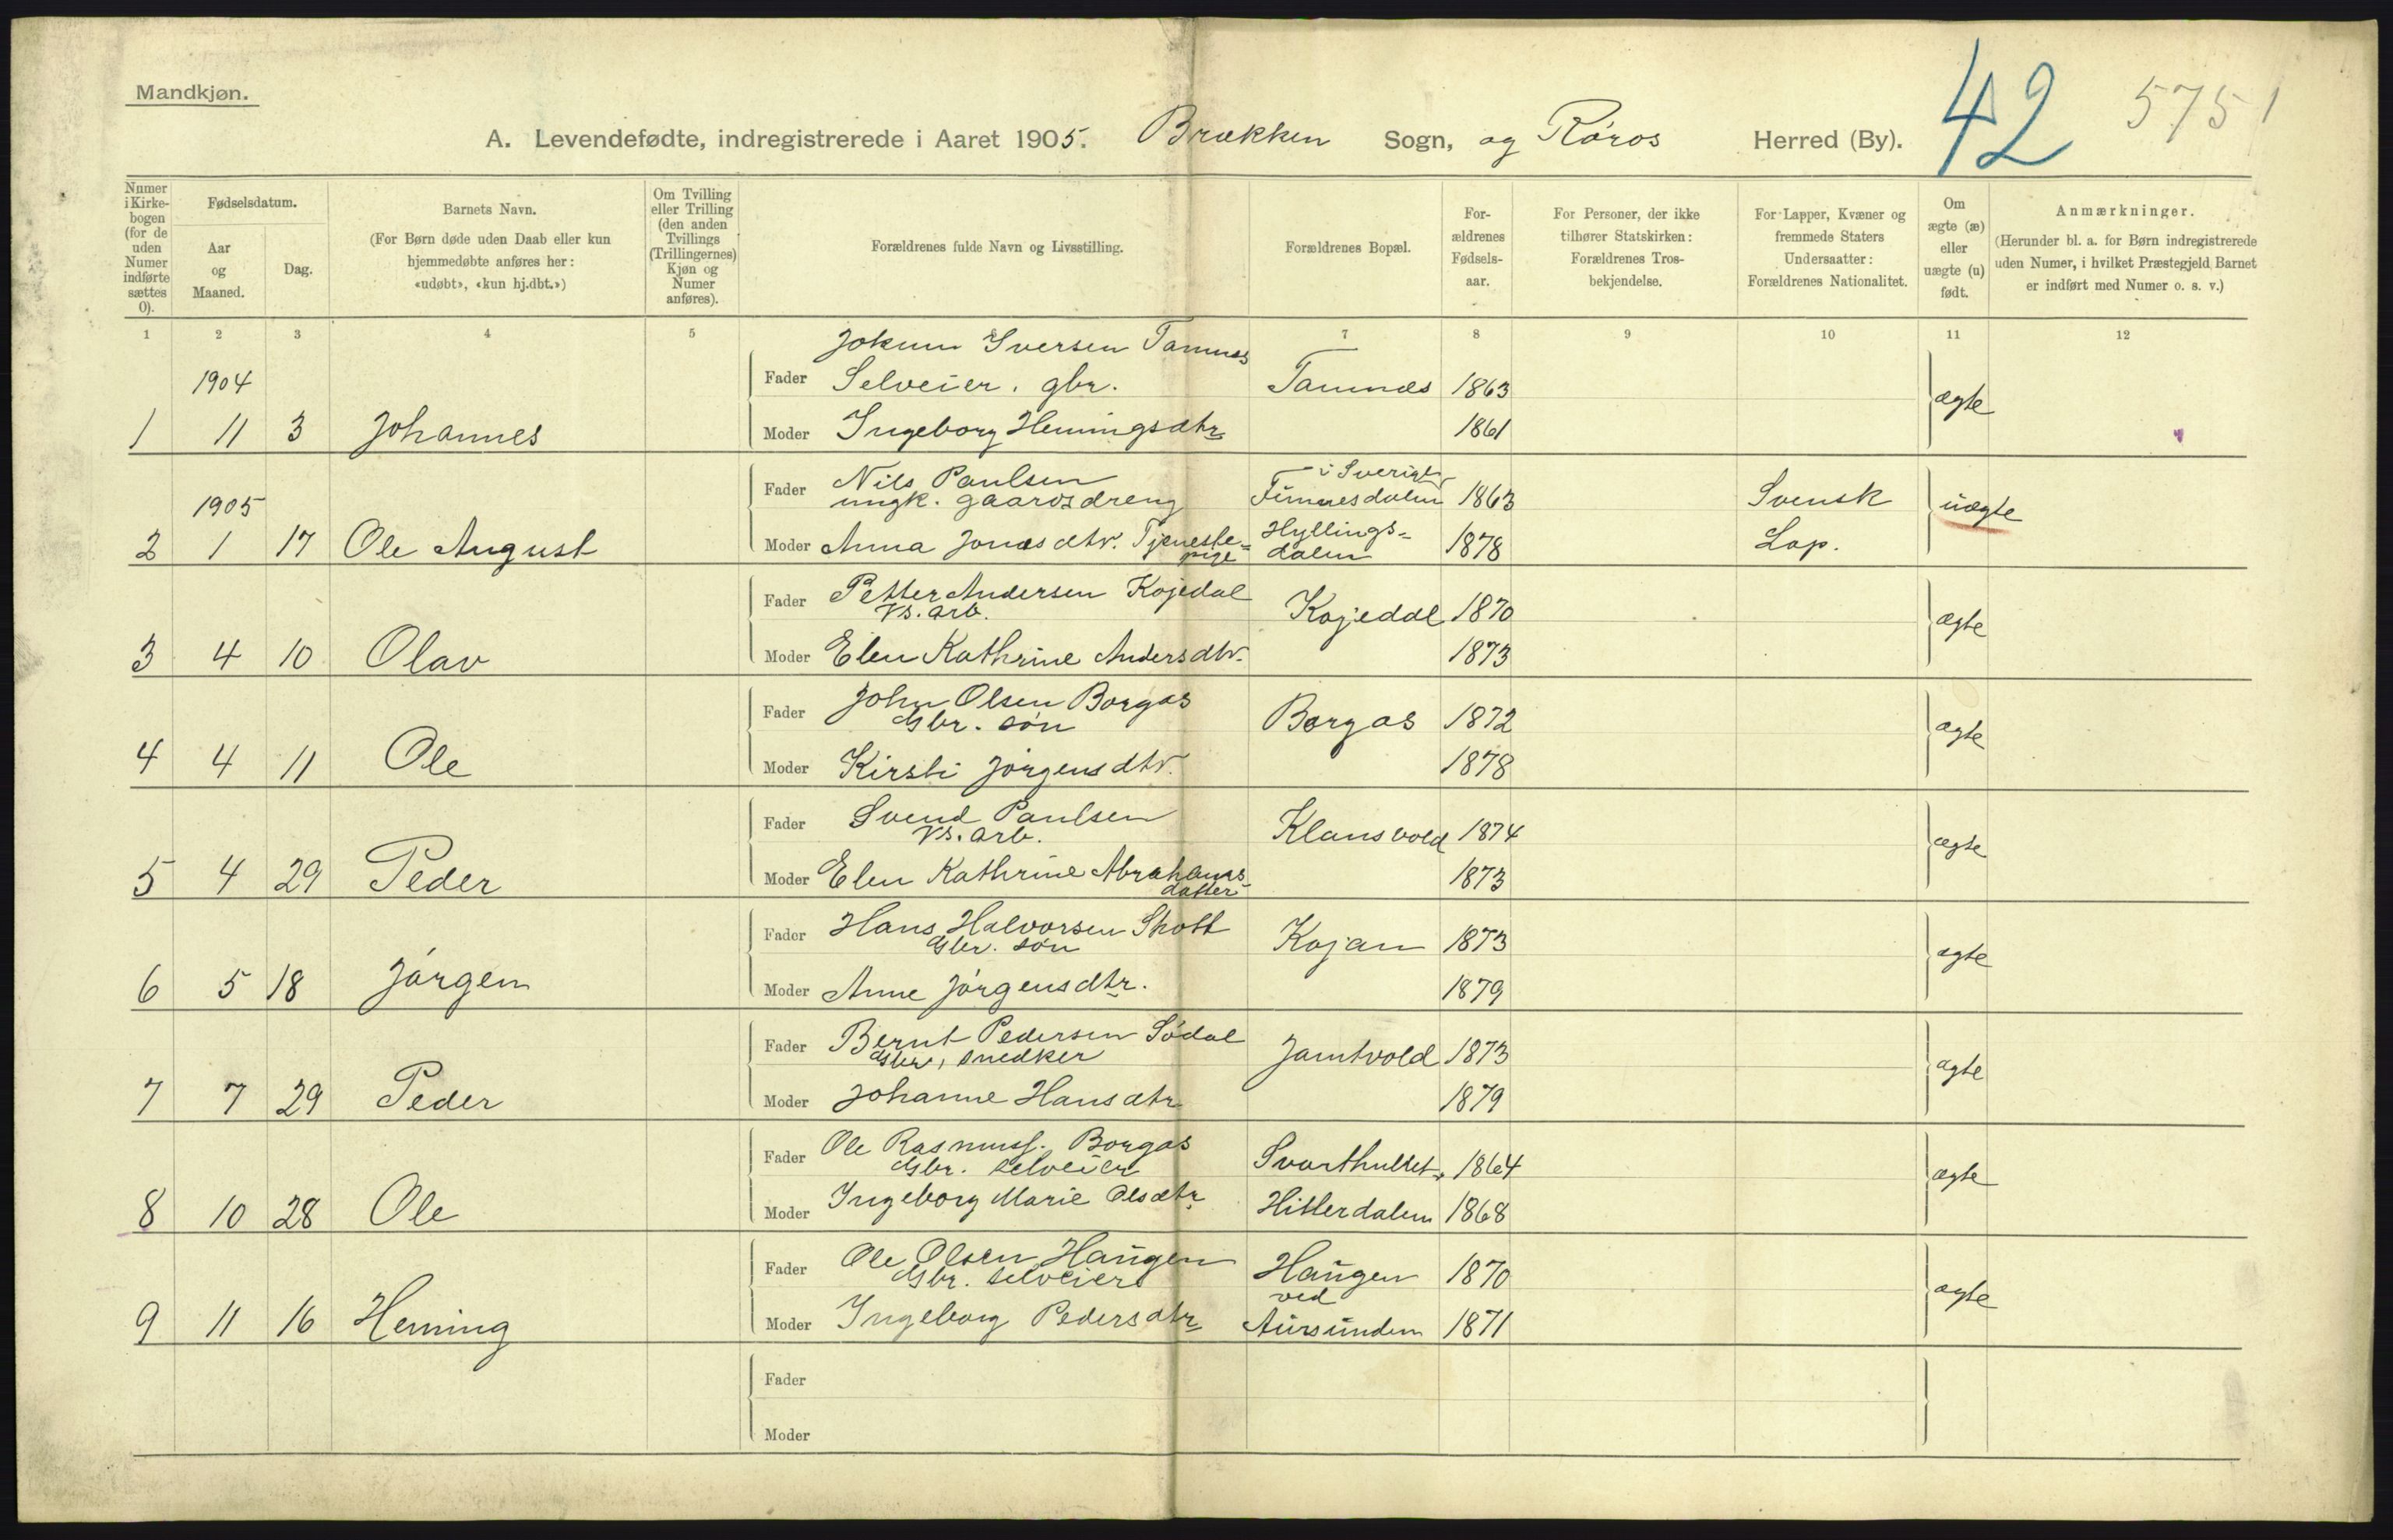 Mandkjøn.
42 5751
A. Levendefødte, indregistrerede i Aaret 1905. Brækken Sogn, og Røros Herred (By).
Numer i Kirkebogen (for de uden Numer indførte sættes 0).
Fødselsdatum.
Aar og Maaned.
Dag.
Barnets Navn.
(For Børn døde uden Daab eller kun
hjemmedøbte anføres her:
«udøbt», «kun hj.dbt.»)
Om Tvilling
eller Trilling
(den anden
Tvillings
(Trillingernes)
Kjøn og
Numer
anføres).
Forældrenes fulde Navn og Livsstilling.
Forældrenes Bopæl.
For-
ældrenes
Fødsels-
aar.
For Personer, der ikke
tilhører Statskirken:
Forældrenes Tros-
bekjendelse.
For Lapper, Kvæner og
fremmede Staters
Undersaatter:
Forældrenes Nationalitet.
Om
ægte (æ)
eller
uægte (u)
født.
Anmærkninger.
(Herunder bl. a. for Børn indregistrerede
uden Numer, i hvilket Præstegjeld Barnet
er indført med Numer o. s. v.)
1 2 3 4 5 7 8 9 10 11 12
Jokum Iversen Tamnes
1904 Fader Selveier. gbr. Tamnæs 1863 ægte
1 11 3 Johannes Moder Ingeborg Hemingsdtr 1861
Fader Nils Paulsen i Sverige
1905 ungk. gaardsdreng Funnesdalen 1863 Svensk uægte
2 1 17 Ole August Moder Anna Jonasdtr. Tjeneste= Hyllings= 1878 Lap.
pige dalen
Fader Petter Andersen Kojedal
Vs. arb. Kojedal 1870 ægte
3 4 10 Olav Moder Elen Kathrine Andersdtr. 1873
Fader John Olsen Borgos
Gbr. søn Borgos 1872 ægte
4 4 11 Ole Moder Kirsti Jörgensdtr. 1878
Fader Svend Paulsen
Vs. arb. Klausvold 1874 ægte
5 4 29 Peder Moder Elen Kathrine Abrahams 1873
datter
Fader Hans Halvorsen Skott
Gbr. søn Kojan 1873 ægte
6 5 18 Jörgen Moder Anne Jörgensdtr. 1879
Fader Bernt Pedersen Sødal
Gbr, snedker Jamtvold 1873 ægte
7 7 29 Peder Moder Johanne Hansdtr 1879
Fader Ole Rasmuss. Borgos
Gbr. selveier Svarthultet, 1864 ægte
8 10 28 Ole Moder Ingeborg Marie Olsdtr Hitterdalen 1868
Fader Ole Olsen Haugen
Gbr. selveier Haugen 1870 ægte
ved
9 11 16 Heming Moder Ingeborg Pedersdtr Aursunden 1871
Fader
Moder